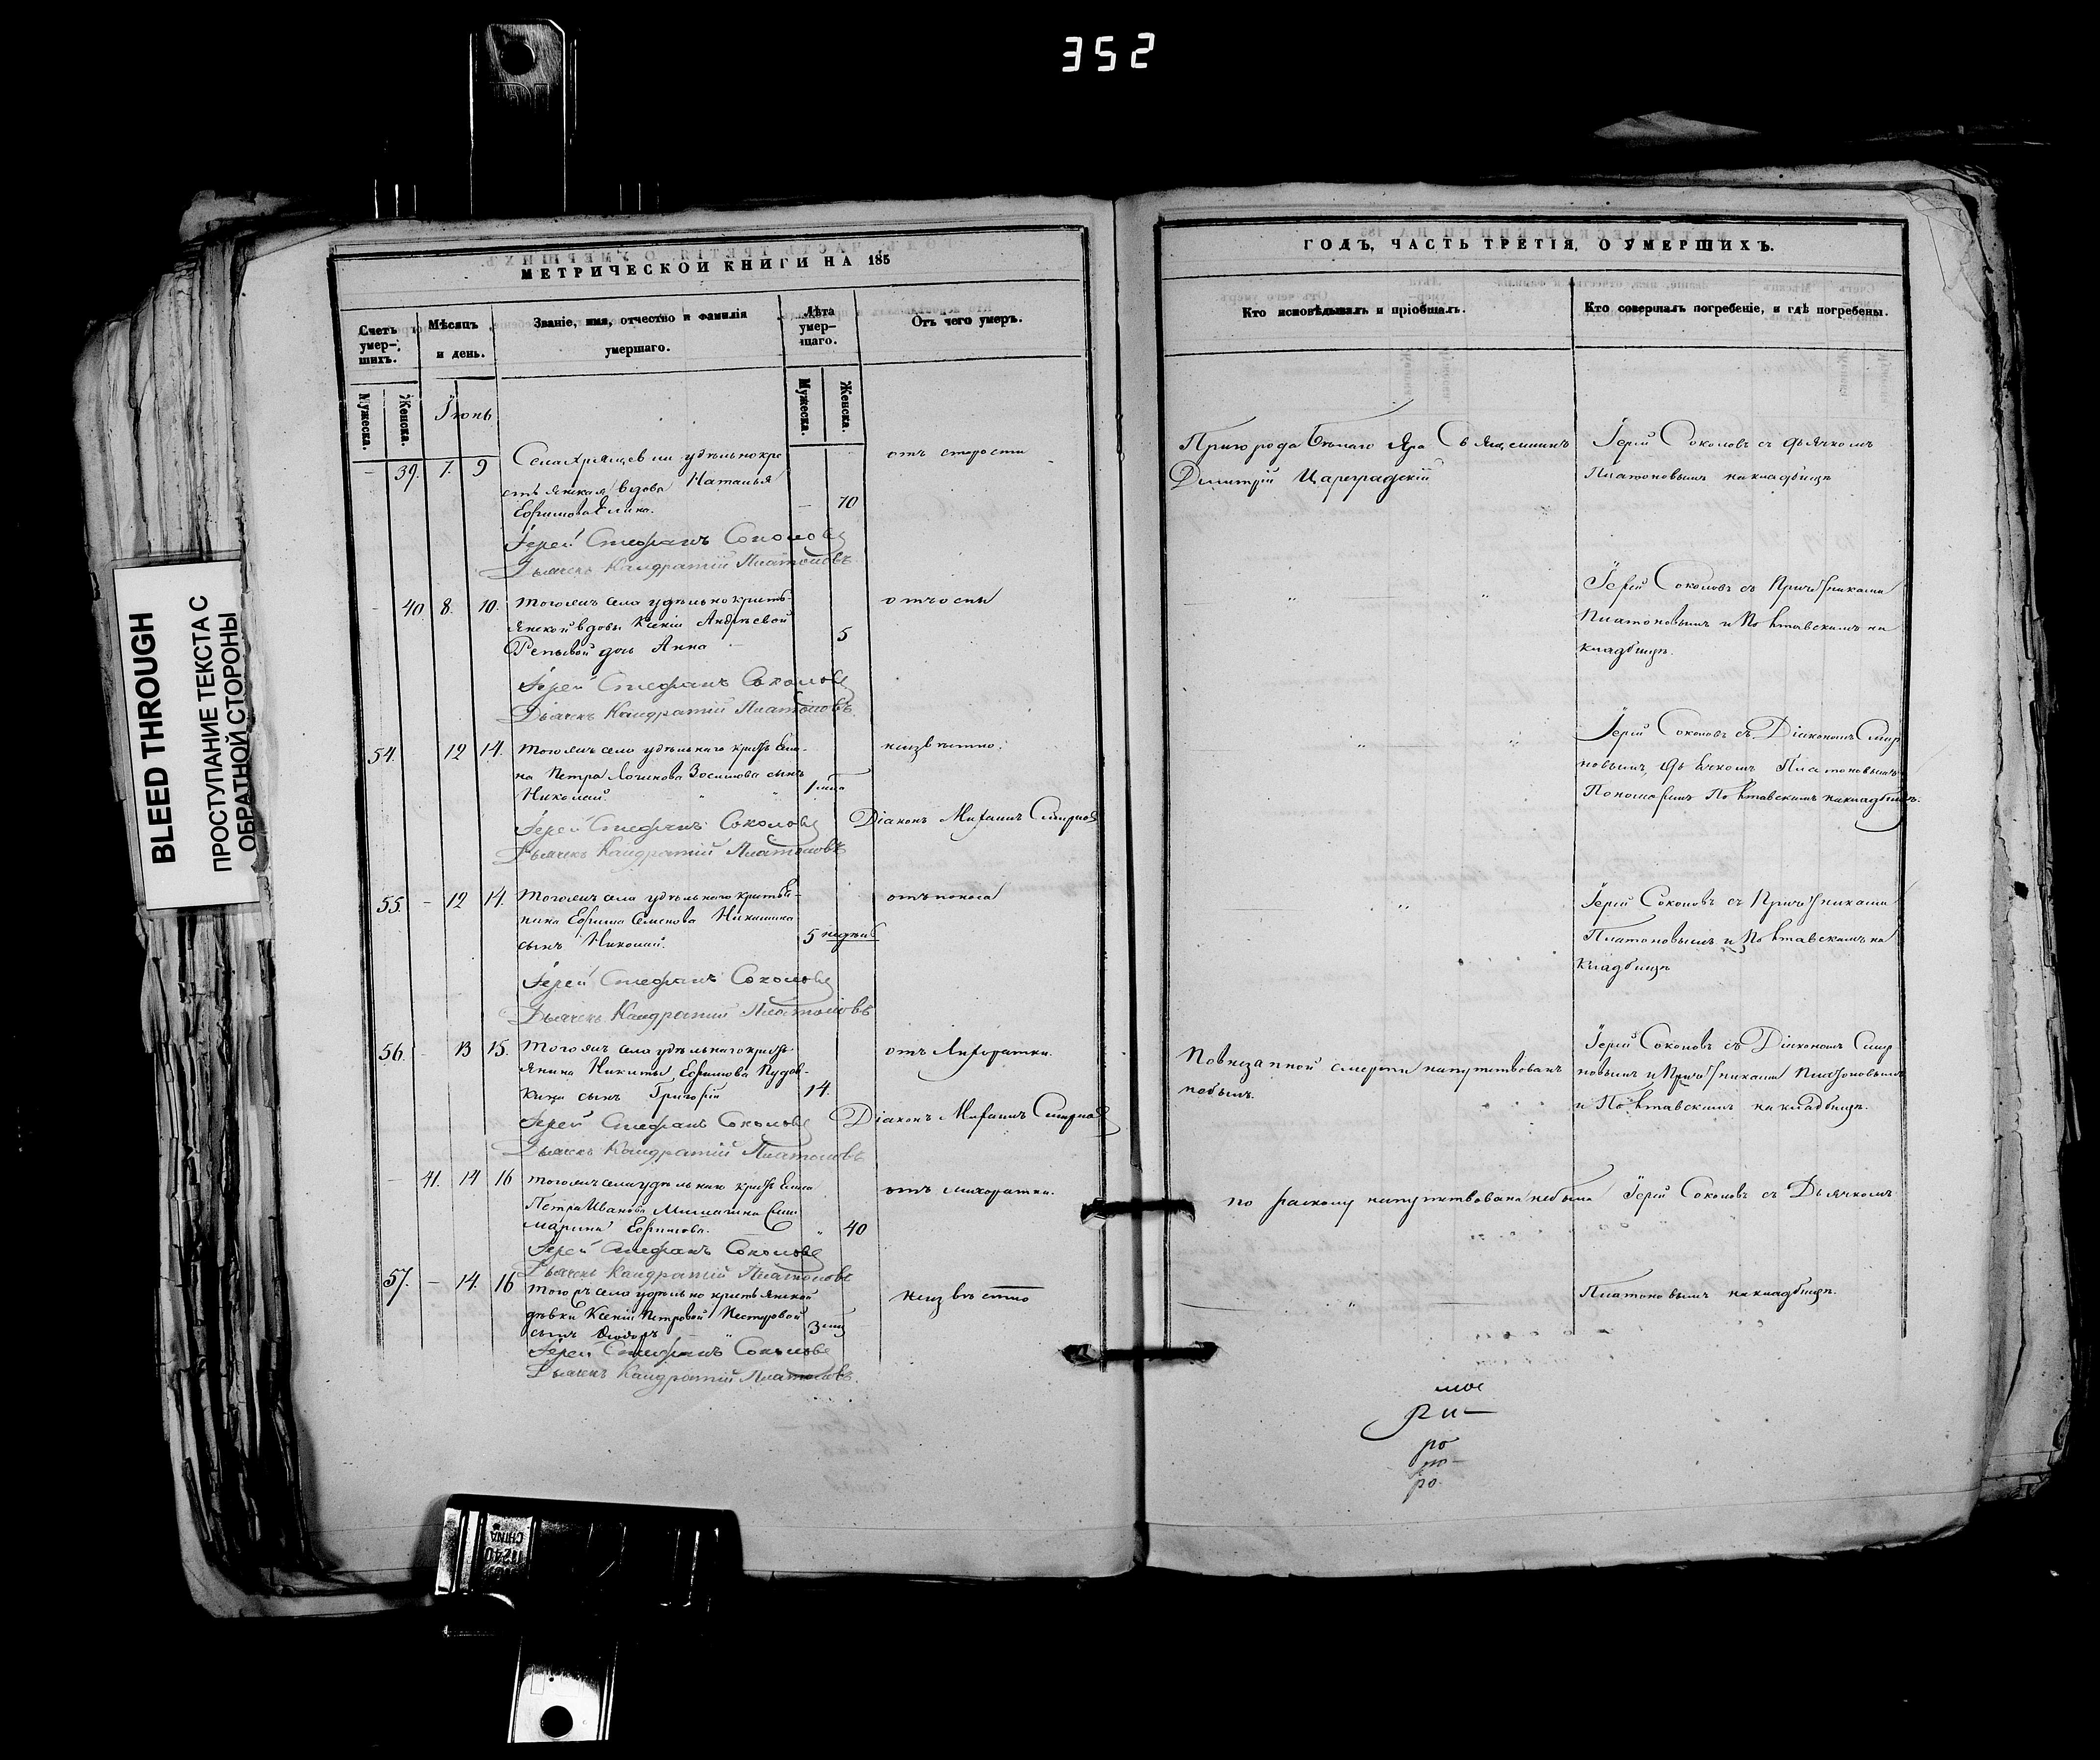 352
BLEED THROUGH
ПРОСТУПАНИЕ ТЕКСТА С
ОБРАТНОЙ СТОРОНЫ
МЕТРИЧЕСКОЙ КНИГИ НА 185
Счетъ умер-шихъ.
Мѣсяцъ и день.
Званіе, имя, отчество и фамилія умершаго.
Лѣта умер-шаго.
Отъ чего умеръ.
Мужеска.
Женска.
Мужеска.
Женска.
Іюнь
39. 7. 9 Села Хрящевки удѣльнокре
стьянская вдова Наталья
Ефимова Елина. 70
отъ старости
Іерей Стефанъ Соколовъ
Дьячекъ Кандратій Платоновъ
40 8. 10. тогожъ села удѣльнокресть-
янской вдовы Ксеніи Андрѣевой
дочь Анна 5
отъ оспы
Іерей Стефанъ Соколовъ
Дьячекъ Кандратій Платоновъ
54. 12 14. тогожъ села удѣльнаго крестьяни-
на Петра Зосимова сынъ
Николай.
неизвѣстно.
Іерей Стефанъ Соколовъ Діаконъ Смирновъ
Дьячекъ Кандратій Платоновъ
55. - 12 14. тогожъ села удѣльнаго крестья-
нина Ефима Семенова Никишина
сынъ Николай. 5 недѣль
отъ поноса
Іерей Стефанъ Соколовъ
Дьячекъ Кандратій Платоновъ
56. - 13 15. тогожъ села удѣльнаго кресть-
янина Никиты Ефимова Пудов-
кина сынъ Григорій 14.
отъ лихоратки.
Іерей Стефанъ Соколовъ Діаконъ Смирновъ
Дьячекъ Кандратій Платоновъ
- 41. 14 16 тогожъ села удѣльнаго крестьянина
Петра Иванова жена
Марина Ефимова. 40
отъ лихоратки.
Іерей Стефанъ Соколовъ
Дьячекъ Кандратій Платоновъ
57. - 14. 16 тогожъ села удѣльно крестьянской
дѣвки Ксеніи Петровой Нестеровой
сынъ Ѳеодоръ
неизвѣстно
Іерей Стефанъ Соколовъ
Дьячекъ Кандратій Платоновъ.
ГОДЪ, ЧАСТЬ ТРЕТІЯ, О УМЕРШИХЪ.
Кто исповѣдывалъ и пріобщалъ.
Кто совершалъ погребеніе, и гдѣ погребены.
Пригорода Бѣлаго Яра Священникъ
Димитрій Цареградскій
Іерей Соколовъ съ дьячкомъ
Платоновымъ на кладбищѣ
Іерей Соколовъ съ Причетниками
Платоновымъ и Полтавскимъ на
кладбищѣ.
Іерей Соколовъ съ Діакономъ Смир
новымъ, дьячкомъ Платоновымъ
Пономаремъ Полтавскимъ на кладбищѣ.
Іерей Соколовъ съ Причетниками
Платоновымъ и Полтавскимъ на
кладбищѣ
По внезапной смерти напутствованъ
небылъ.
Іерей Соколовъ съ Діакономъ Смир
новымъ и Причетниками Платоновымъ
и Полтавскимъ на кладбищѣ.
напутствована небыла
Іерей Соколовъ съ Дьячкомъ
Платоновымъ на кладбищѣ.
ри-
ро
ро
CHINA